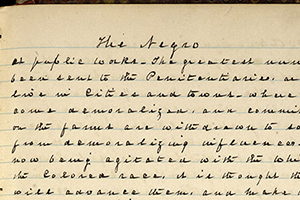 The Negro
at public works. The greatest num
been sent to the Penitentiaries, a
live in Cities and towns, where
come demoralized, and commi
on the farms are withdrawn to so
from demoralizing influences.
now being agitated with the Whi
the Colored race, it is thought th
will advance them, and make